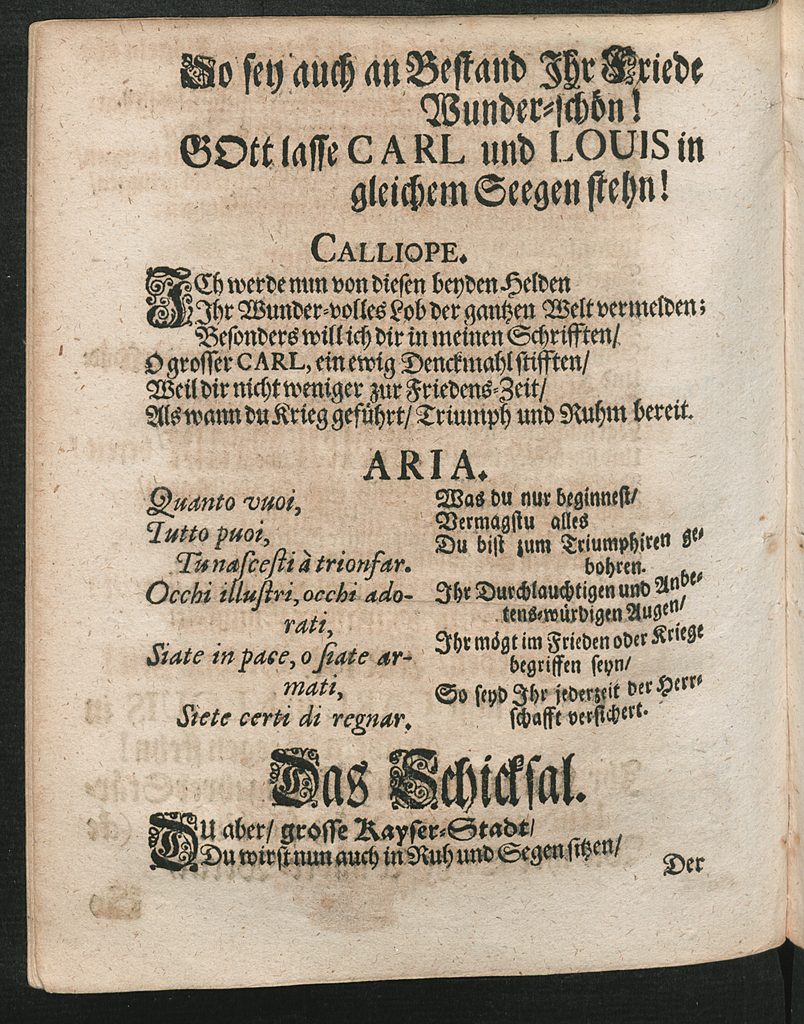 So sey auch an Bestand Ihr Friede
Wunder-schön!
GOtt lasse CARL und LOUIS in
gleichem Seegen stehn!
CALLIOPE.
ICh werde nun von diesen beyden Helden
Ihr Wunder-volles Lob der gantzen Welt vermelden;
Besonders will ich dir in meinen Schrifften/
O grosser CARL, ein ewig Denckmahl stifften/
Weil dir nicht weniger zur Friedens-Zeit/
Als wann du Krieg geführt/ Triumph und Ruhm bereit.
ARIA.
Quanto vuoi,
Tutto puoi,
Tu nascesti à trionfar.
Occhi illustri, occhi ado-
rati,
Siate in pace, o siate ar-
mati,
Siete certi di regnar.
Was du nur beginnest/
Vermagstu alles
Du bist zum Triumphiren ge-
bohren.
Ihr Durchlauchtigen und Anbe-
tens-würdigen Augen/
Ihr mögt im Frieden oder Kriege
begriffen seyn/
So seyd Ihr jederzeit der Herr-
schafft versichert.
Das Schicksal.
DU aber/ grosse Kayser-Stadt/
Du wirst nun auch in Ruh und Segen sitzen/
Der